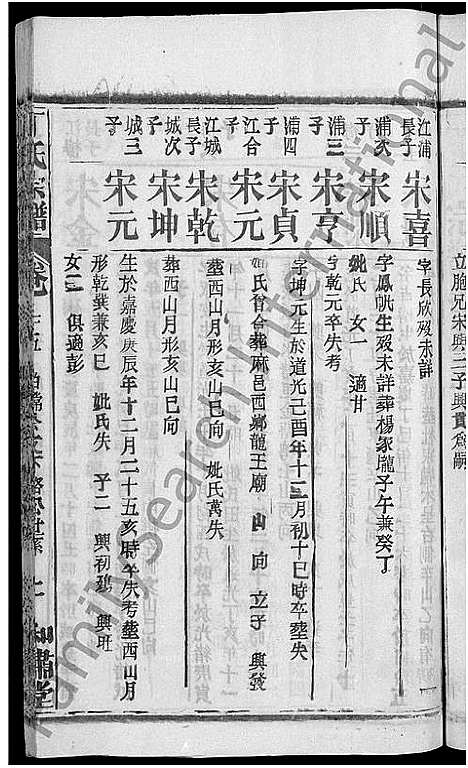 立胞兄宋與二子興貫為嗣
江浦長子 宋喜 字長欣歿未詳
浦次子 宋順 字鳳帆生歿未詳葬楊家隴子午兼癸丁
妣氏 女一 適甘
浦三子 宋亨 字乾元卒失考
浦四子 宋貞 字坤元生於道光己酉年十二月初十巳時卒塟失
江合子 宋元 妣氏曾合葬麻邑西鄉龍王廟 山 向 立子 興發
江城長子 宋乾 塟西山月形亥山巳向 妣氏萬失
城次子 宋坤 葬西山月形亥山巳向
城三子 宋元 生於嘉慶庚辰年十二月二十五亥時卒失考塟西山月
形乾巽兼亥巳 妣氏失 子二 興初 興旺
女二 俱適彭
氏宗譜
FamilySearch International